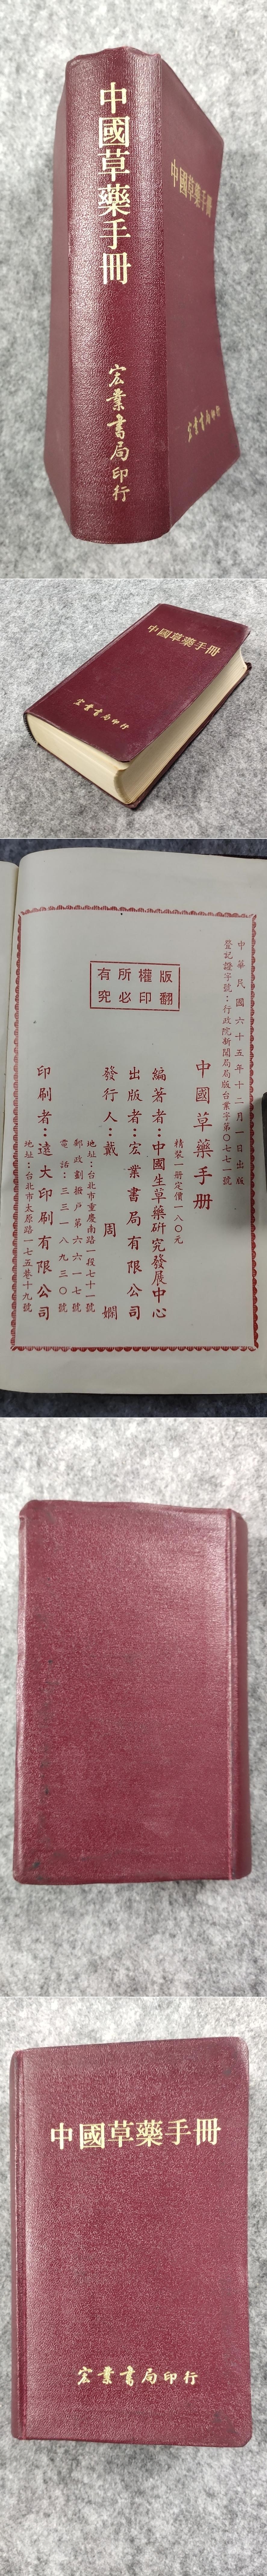 中國草藥手冊
宏業書局印行
中國草藥手冊
宏業書局印行
中國草藥手冊
宏業書局印行
中華民國六十五年十二月一日出版
登記證字號：行政院新聞局局版台業字第〇七七一號
中國草藥手册
精裝一册定價一八〇元
編著者：中國生草藥研究發展中心
出版者：宏業書局有限公司
發行人：戴周嫻
地址：台北市重慶南路一段七十一號
郵政劃撥戶第六六一七號
電話：三三一八九三〇號
印刷者：遠大印刷有限公司
地址：台北市太原路一七五巷十九號
版權所有
翻印必究
中國草藥手冊
宏業書局印行